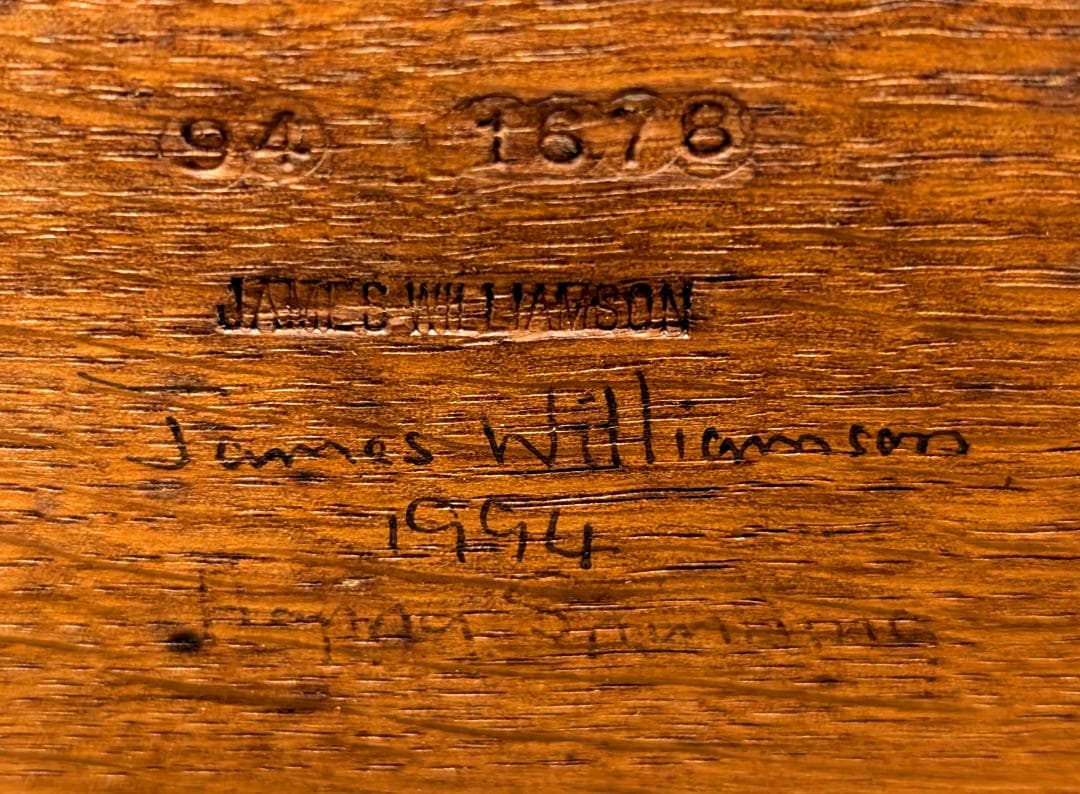 94 1678
JAMES WILLIAMSON
James Williamson
1994